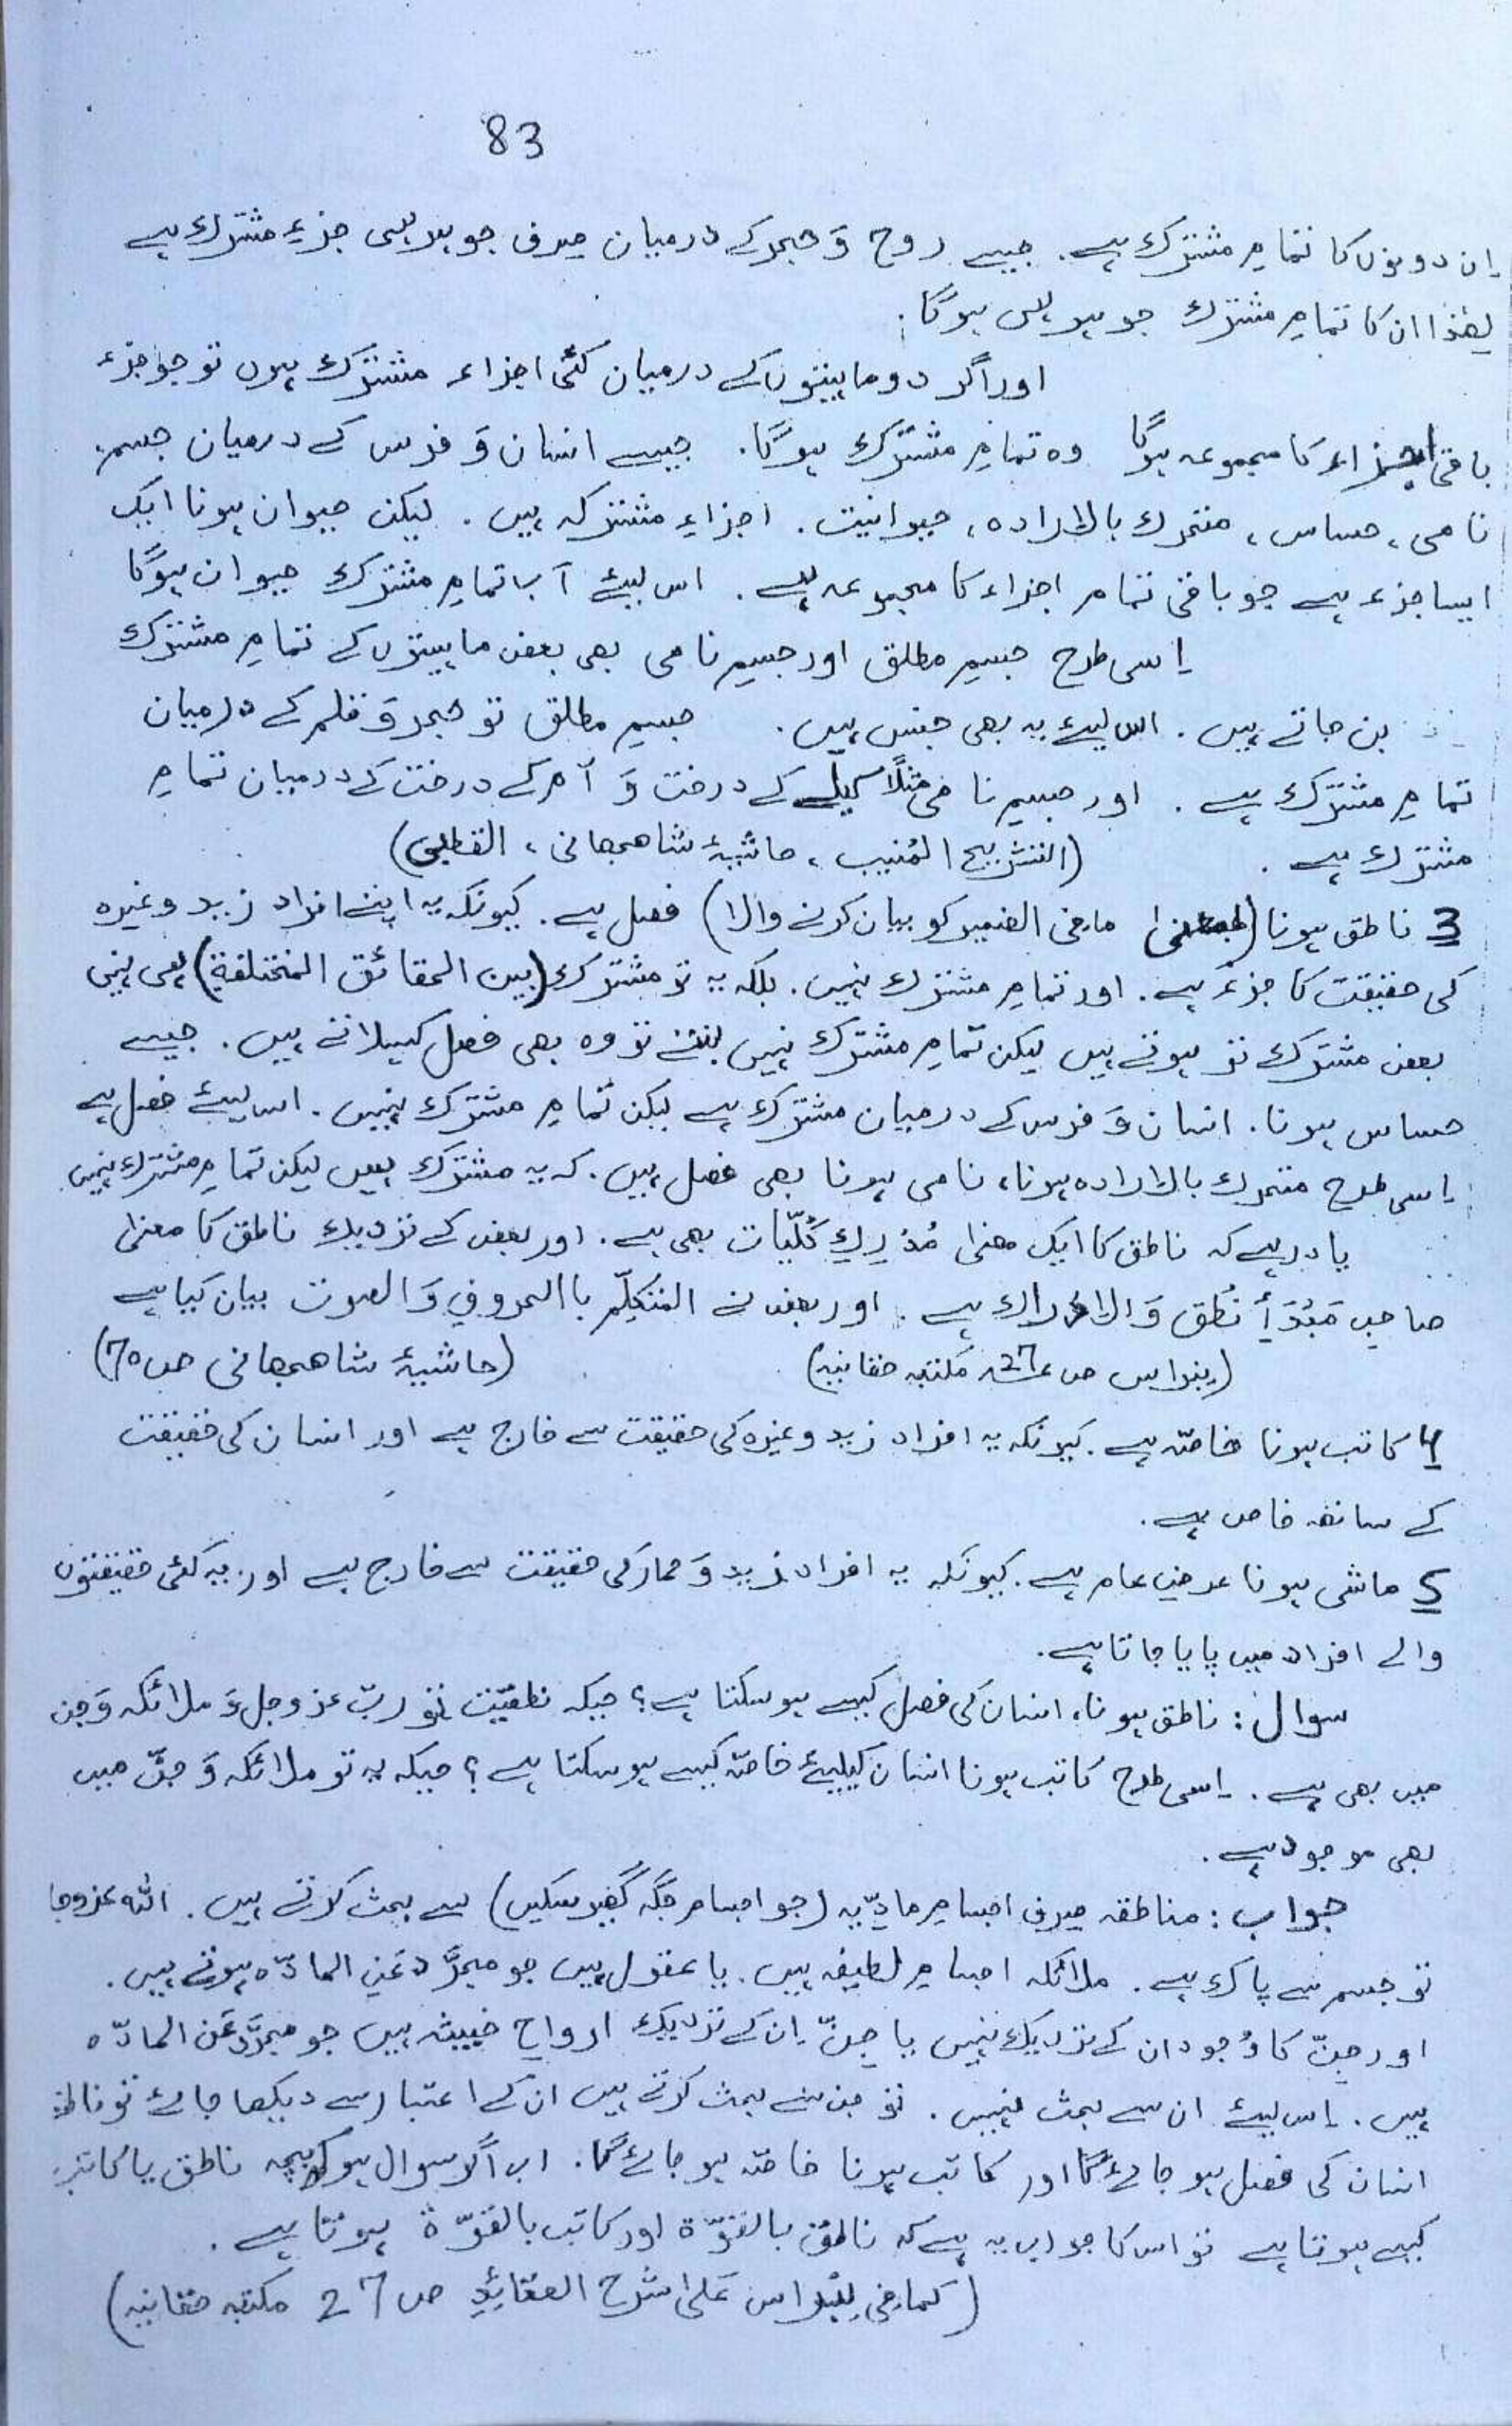 83
اِن دونوں کا تمامِ مشترک ہے۔ جیسے روح وَ حجر کے درمیان صرف جوہر ہی جزءِ مشترک ہے
لھٰذا ان کا تمامِ مشترک جوہر ہی ہوگا۔
اور اگر دو ماہیتوں کے درمیان کئی اجزاء مشترک ہوں تو جو جزء
باقی اجزاء کا مجموعہ ہوگا وہ تمامِ مشترک ہوگا۔ جیسے انسان وَ فرس کے درمیان جسم،
نامی، حساس، متحرک بالارادہ، حیوانیت۔ اجزاءِ مشترکہ ہیں۔ لیکن حیوان ہونا ایک
ایسا جزء ہے جو باقی تمام اجزاء کا مجموعہ ہے۔ اس لیئے اب تمامِ مشترک حیوان ہوگا
اِسی طرح جسمِ مطلق اور جسمِ نامی بھی بعض ماہیتوں کے تمامِ مشترک
بن جاتے ہیں۔ اس لیئے یہ بھی جنس ہیں۔ جسمِ مطلق تو حجر وَ قلم کے درمیان
تمامِ مشترک ہے۔ اور جسمِ نامی مثلًا کیلے کے درخت وَ آم کے درخت کے درمیان تمامِ
مشترک ہے۔ (التشریح المُنیب، حاشیۂ شاھجھانی، القطبی)
3 ناطق ہونا (بمعنٰی ما فی الضمیر کو بیان کرنے والا) فصل ہے۔ کیونکہ یہ اپنے افراد زید وغیرہ
کی حقیقت کا جزء ہے۔ اور تمامِ مشترک نہیں۔ بلکہ یہ تو مشترک (بین الحقائق المختلفة) بھی نہیں
بعض مشترک تو ہوتے ہیں لیکن تمامِ مشترک نہیں بنتے تو وہ بھی فصل کہلاتے ہیں۔ جیسے
حساس ہونا۔ انسان وَ فرس کے درمیان مشترک ہے لیکن تمامِ مشترک نہیں۔ اس لیئے فصل ہے
اِسی طرح متحرک بالارادہ ہونا، نامی ہونا بھی فصل ہیں۔ کہ یہ مشترک ہیں لیکن تمامِ مشترک نہیں
یاد رہے کہ ناطق کا ایک معنٰی مُدْرِکِ کُلّیات بھی ہے۔ اور بعض کے نزدیک ناطق کا معنٰی
صاحبِ مَبْدَأِ نُطق وَ الادراک ہے۔ اور بعض نے المتکلِّم باالحروفِ وَ الصوت بیان کیا ہے
(نبراس ص 27 مکتبہ حقانیہ) (حاشیۂ شاھجھانی ص 70)
4 کاتب ہونا خاصّہ ہے۔ کیونکہ یہ افراد زید وغیرہ کی حقیقت سے خارج ہے اور انسان کی حقیقت
کے ساتھ خاص ہے۔
5 ماشی ہونا عرضِ عام ہے۔ کیونکہ یہ افراد زید وَ حمار کی حقیقت سے خارج ہے اور یہ کئی حقیقتوں
والے افراد میں پایا جاتا ہے۔
سوال: ناطق ہونا، انسان کی فصل کیسے ہوسکتا ہے؟ جبکہ نطقیّت تو ربّ عزوجل وَ ملائکہ وَ جن
میں بھی ہے۔ اِسی طرح کاتب ہونا انسان کیلیئے خاصّہ کیسے ہوسکتا ہے؟ جبکہ یہ تو ملائکہ وَ جنّ میں
بھی موجود ہے۔
جواب: مناطقہ صرف اجسامِ مادِّیہ (جو اجسام جگہ گھیر سکیں) سے بحث کرتے ہیں۔ اللہ عزوجل
تو جسم سے پاک ہے۔ ملائکہ اجسامِ لطیفہ ہیں۔ یا عقول ہیں جو مجرَّد عَنِ المادّہ ہوتے ہیں۔
اور جنّ کا وُجود ان کے نزدیک نہیں یا جنّ اِن کے نزدیک ارواحِ خبیثہ ہیں جو مجرَّد عَن المادّہ
ہیں۔ اِس لیئے ان سے بحث نہیں۔ تو جن سے بحث کرتے ہیں ان کے اعتبار سے دیکھا جائے تو ناطق
انسان کی فصل ہو جائے گا اور کاتب ہونا خاصّہ ہو جائے گا۔ اب اگر سوال ہو کہ بچہ ناطق یا کاتب
کیسے ہوتا ہے تو اس کا جواب یہ ہے کہ ناطق بالقوّة اور کاتب بالقوّة ہوتا ہے۔
(کما فی نِبْراس عَلٰی شرحِ العقائِدِ ص 27 مکتبہ حقانیہ)